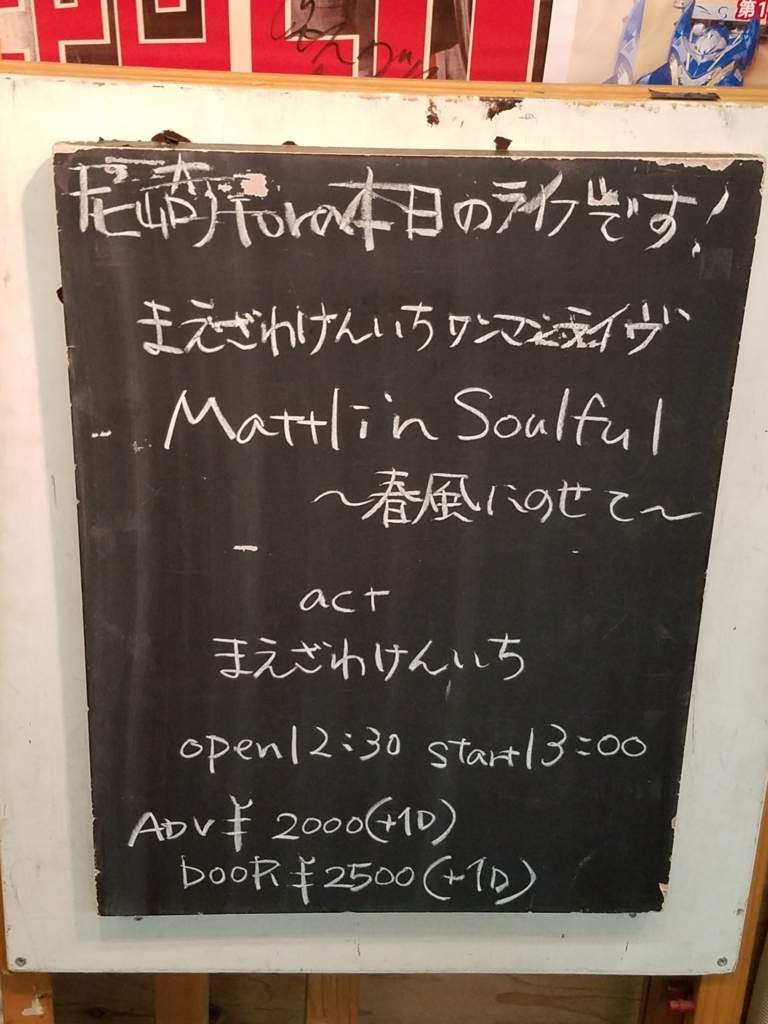 第1
尼崎tora本日のライブです!
まえざわけんいちワンマンライヴ
Mattli'n Soulful
〜春風にのせて〜
act
まえざわけんいち
open12:30 start13:00
ADV¥2000(+1D)
DOOR¥2500(+1D)